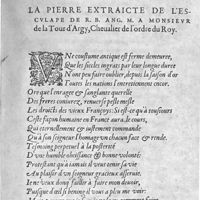 LA PIERRE EXTRAICTE DE L'ES-
CVLAPE DE R. B. ANG. M. A MONSIEVR
de la Tour d'Argy, Cheualier de l'ordre du Roy.
VNe coustume antique est ferme demeuree,
Que les siecles ingrats par leur longue duree
N'ont peu faire oublier, depuis la saison d'or
Toutes les nations l'entretiennent encor.
Ore que l'orrage & sanglante querelle
Des freres conuerez, renuerse pesle mesle
Les droicts des vieux François: Si est-ce qu'à tousiours
Ceste façon humaine en France aura du cours,
Qui eternellement & iustement commande
Qu'à son seigneur l'hommage vn chacun face & rende,
Tesmoing perpetuel à la posterité
D'vne humble obeissance & bonne volonté:
Protestant qu'à iamais il veut vser sa vie
Au plaisir d'vn seigneur gracieux asseruie.
Ie ne veux donq faillir à faire mon deuoir,
Puisque d'ail si benin il vous a pleu me voir: